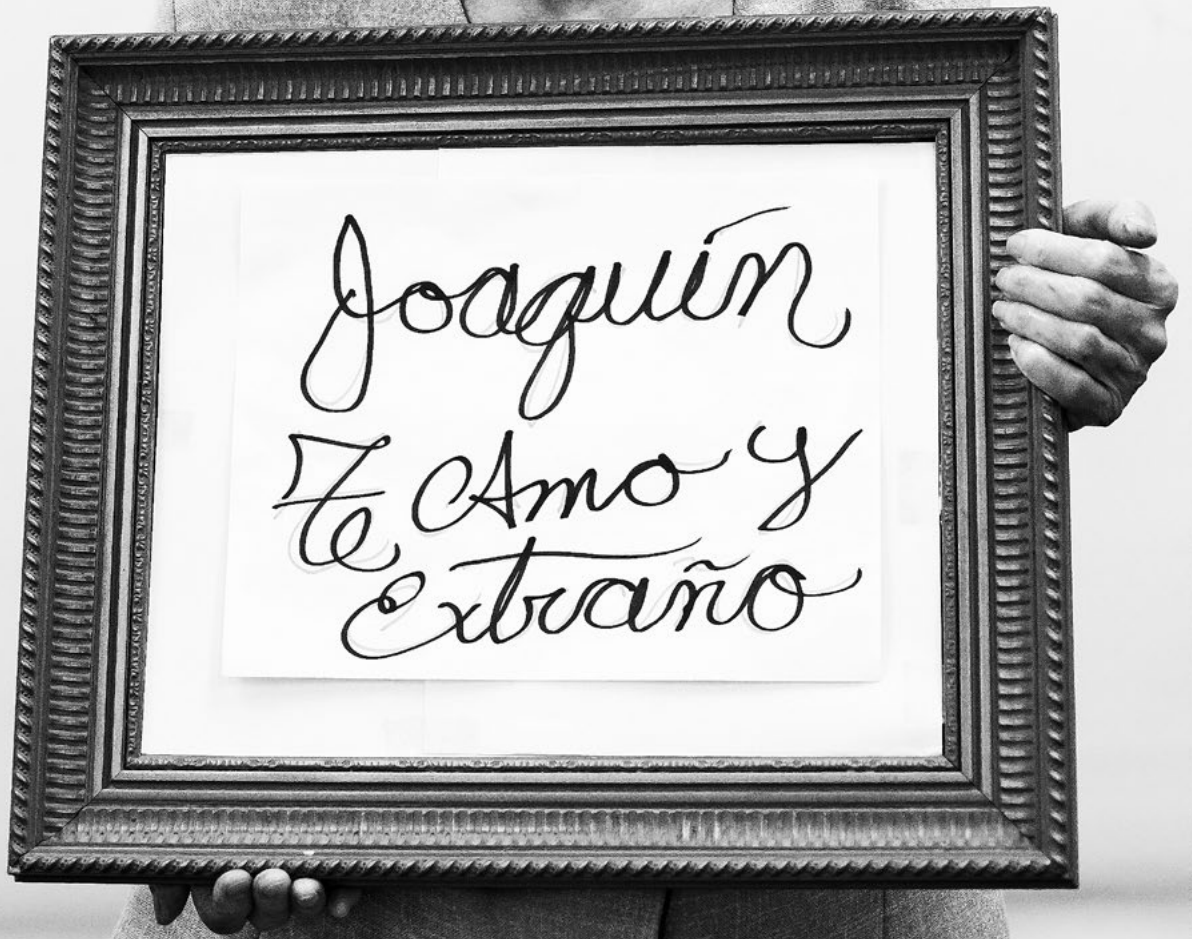 Joaquín
Te Amo y
Extraño